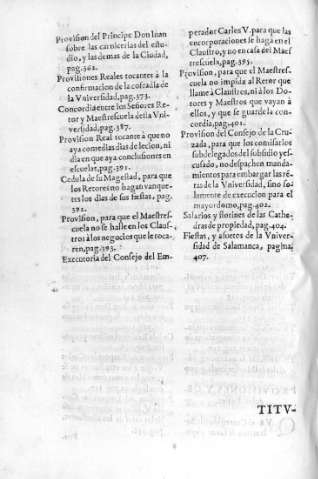 Provision del Principe Don Iuan
sobre las carnicerias del estu-
dio, y las demas de la Ciudad,
pag.362.
Provisiones Reales tocantes à la
confirmacion de la cofradia de
la Vniversidad, pag.373.
Concordia entre los Señores Re-
tor y Maestrescuela desta Vni-
versidad, pag.387.
Provision Real tocante à que no
aya comedias dias de lecion, ni
dia en que aya conclusiones en
escuelas, pag.391.
Cedula de su Magestad, para que
los Retores no hagan vanque-
tes los dias de sus fiestas, pag.
392.
Provision, para que el Maestres-
cuela no se halle en los Claus-
tros à los negocios que le toca-
ren, pag.393.
Executoria del Consejo del Em-
perador Carles V. para que las
encorporaciones se hagã en el
Claustro, y no en casa del Maes
trescuela, pag.395.
Provision, para que el Maestres-
cuela no impida al Retor que
llame à Claustros, ni à los Do-
tores y Maestros que vayan à
ellos, y que se guarde la con-
cordia, pag.401.
Provision del Consejo de la Cru-
zada, para que los comissarios
subdelegados del subsidio y es-
cusado, no despachen manda-
mientos para embargar las rē-
tas de la Vniversidad, sino so-
lamente de execucion para el
mayordomo, pag.402.
Salarios y florines de las Cathe-
dras de propiedad, pag.404.
Fiestas, y asuetos de la Vniver-
sidad de Salamanca, pagina
407.
TITV-